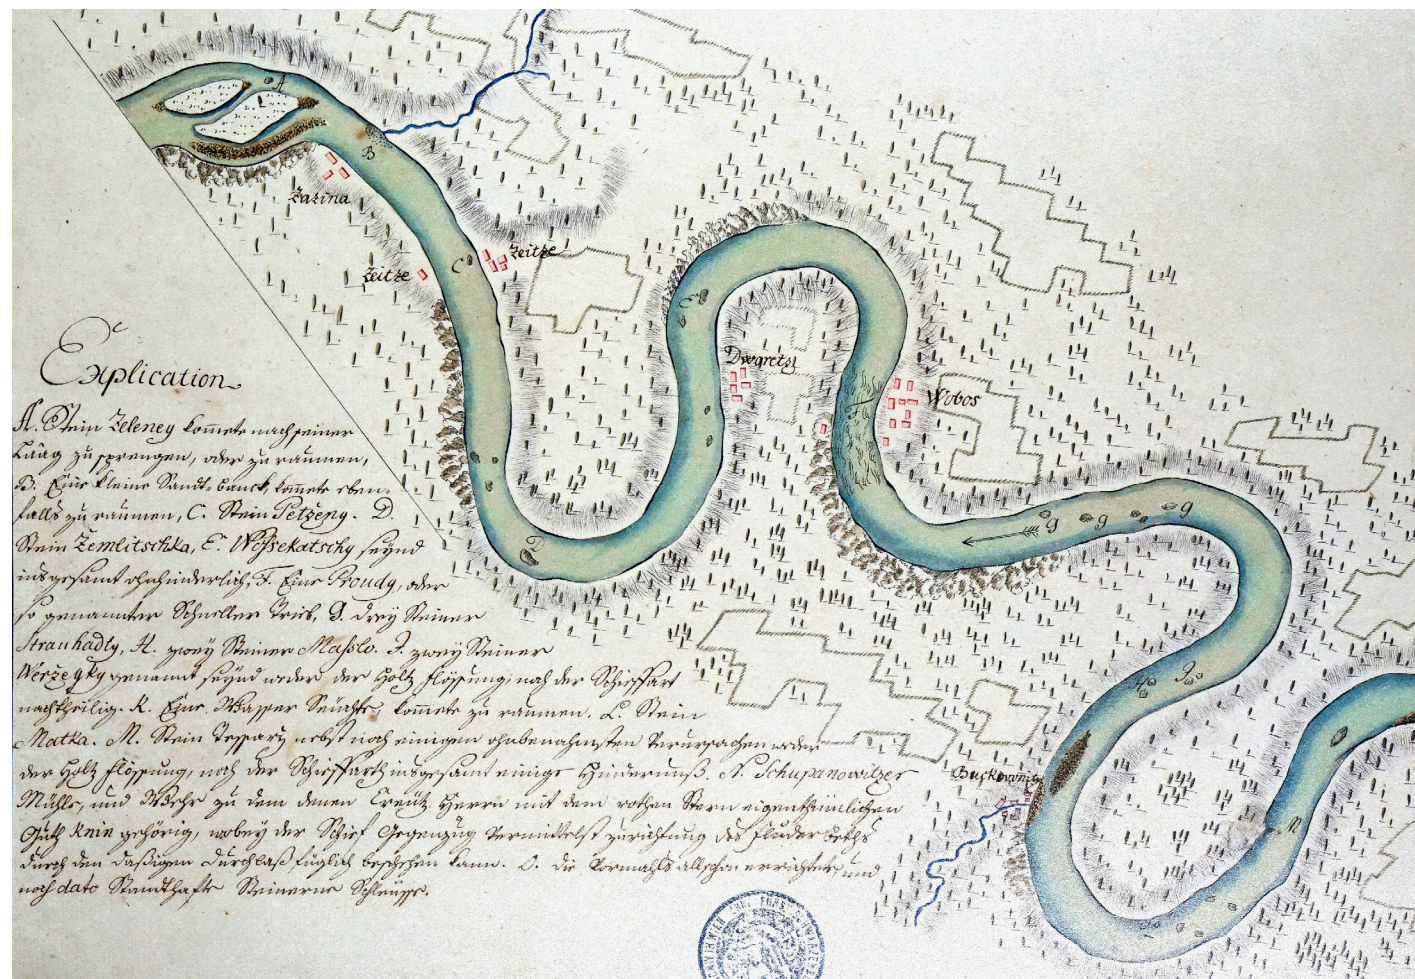 A
B
Zazina
C
Zeitze
Zeitze
E
Dwaretz
F
Wobos
Explication
A. Stein Zeleney kom̅ete nach seiner
Laag zu sprengen, oder zu raumen,
B. Eine kleine Sandt-banck, kom̅ete eben-
falls zu raumen, C. Stein Petzeny. D.
Stein Zemlitschka, E. Wossekatschy seynd
insgesamt ohnhinderlich, F. Eine Proudy, oder
so genannter Schneller Trieb, G. drey Steiner
Strauhadly, H. zwey Steiner Masslo. J. zwey Steiner
genannt seynd weder der Holtz flössung, noch der Schieffart
nachtheilig. K. Eine Wasser Seüchte, kom̅ete zu raumen. L. Stein
Matka. M. Stein nebst noch einigen ohnbenahmsten verursachen weder
der Holtz flössung, noch der Schieffarth insgesamt einige Hindernuß. N. Schupanowitzer
Mühle, und Wöhr zu dem denen Creütz Herrn mit dem rothen Stern eigenthümlichen
Guth Knin gehörig, wobey der Schief Gegenzug vermittelst zurichtung des Fluder Beths
durch den dasigen Durchlaß füglich beschehen kann. O. die vormahls allschon errichtete, und
noch dato Standhafte Steinerne Schleüsse.
D
g
g
g
H
J
M
L